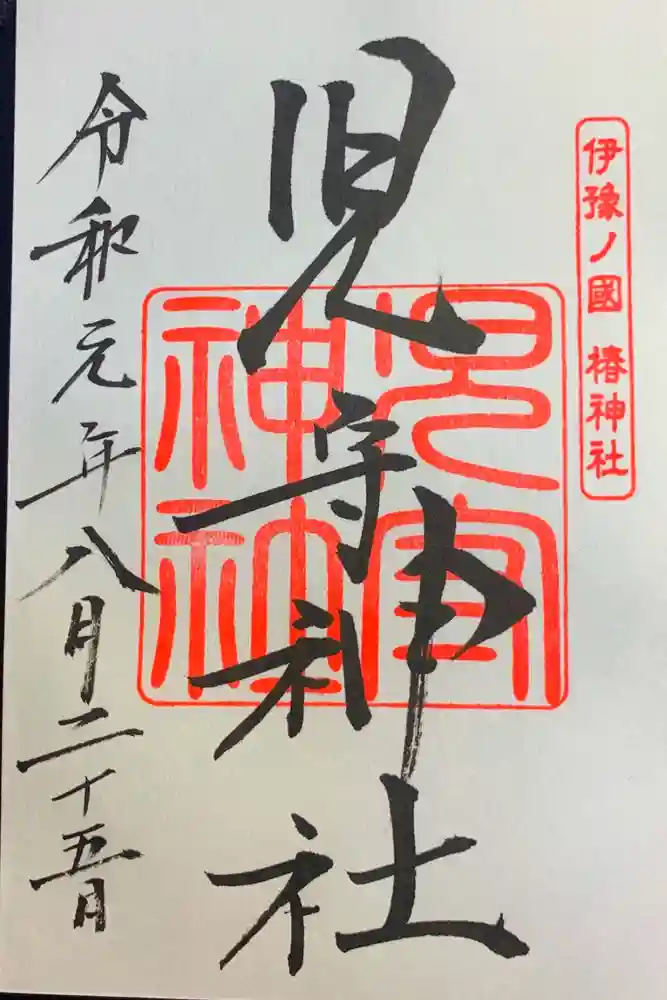 伊豫ノ國 椿神社
児守神社
兒守
神社
令和元年八月二十五日